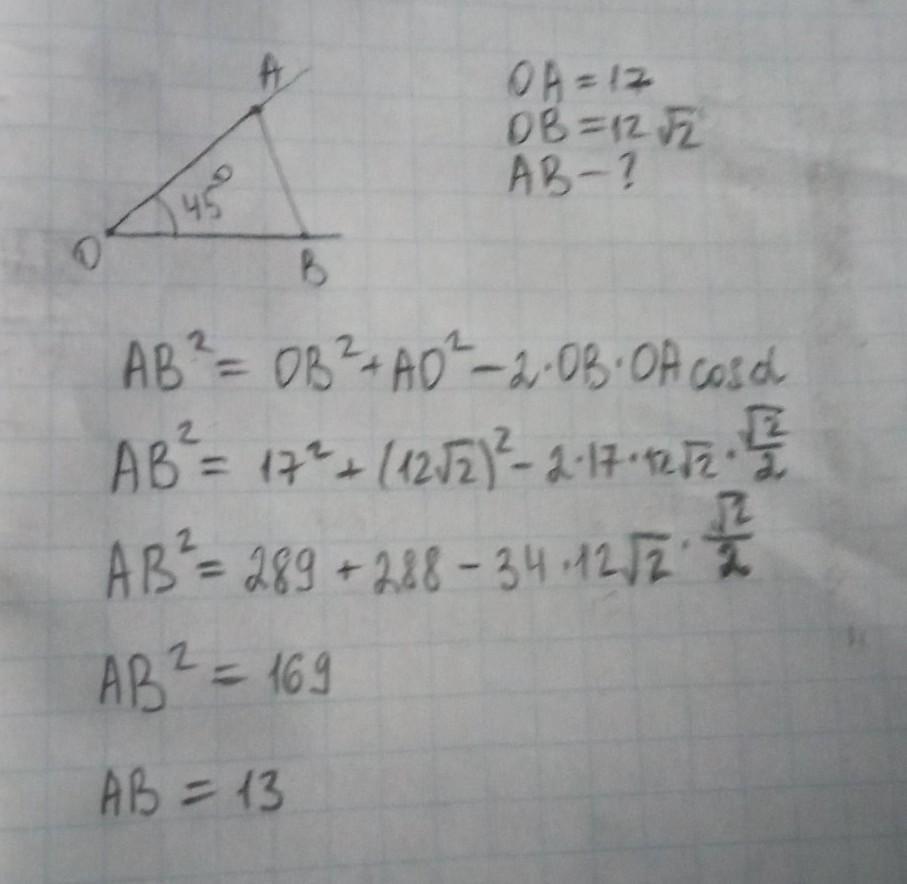 A
45°
O
B
OA = 17
OB = 12√2
AB - ?
AB² = OB² + AO² - 2·OB·OA cosα
AB² = 17² + (12√2)² - 2·17·12√2·√2/2
AB² = 289 + 288 - 34·12√2·√2/2
AB² = 169
AB = 13